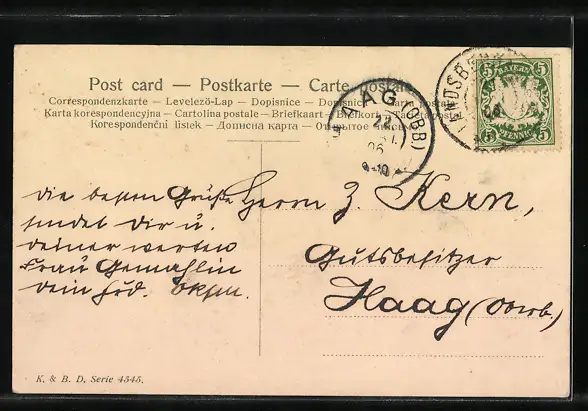 Post card — Postkarte — Carte postale
Correspondenzkarte — Levelező-Lap — Dopisnice — Dopisnica — Carte postale
Karta korespondencyjna — Cartolina postale — Briefkaart — Brefkort — Tarjeta postale
Korespondenční lístek — Дописна карта — Открытое письмо
HAAG (OBB)
22
06
LANDSBERG
BAYERN
5 5
5 5
PFENNIG
die besten Grüße
sendet dir u.
deiner werten
Frau Gemahlin
dein frd.
Herrn J. Kern,
Gutsbesitzer
Haag (Oberb.
K. & B. D, Serie 4545.